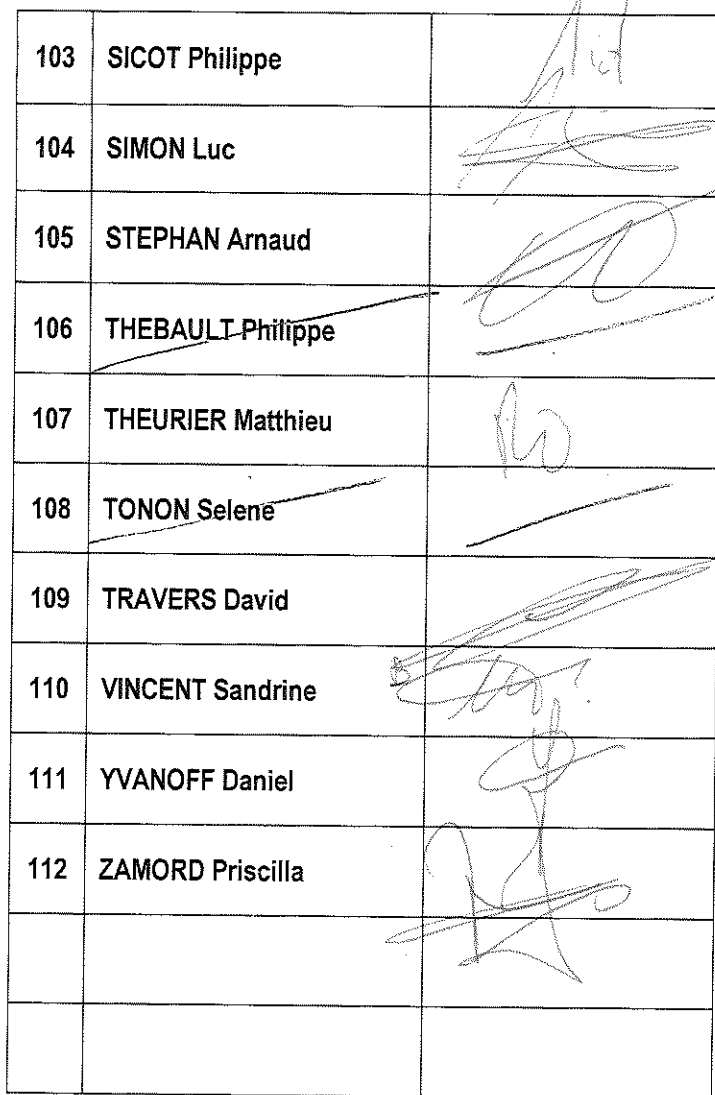 103 SICOT Philippe
104 SIMON Luc
105 STEPHAN Arnaud
106 THEBAULT Philippe
107 THEURIER Matthieu
108 TONON Selene
109 TRAVERS David
110 VINCENT Sandrine
111 YVANOFF Daniel
112 ZAMORD Priscilla